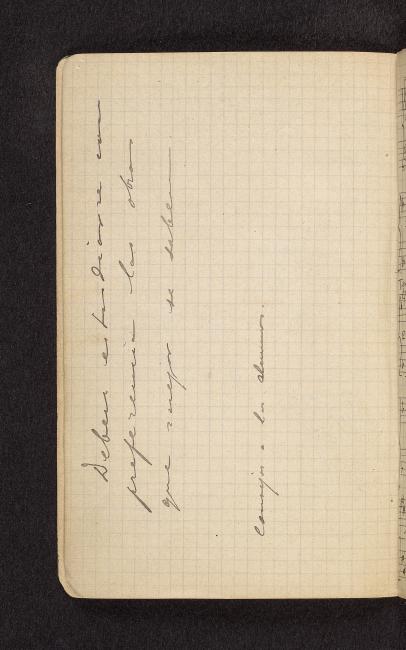 Deben estudiarse con
preferencia las obras
que mejor se saben
Consejos a los alumnos.